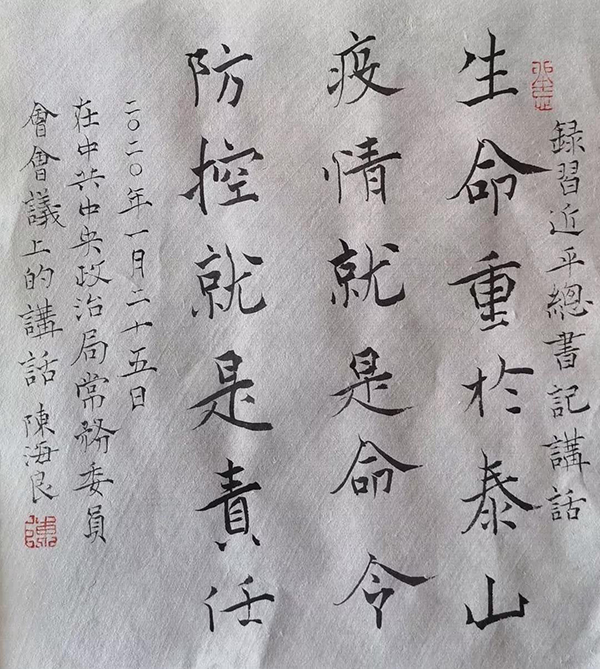 録習近平總書記講話
生命重於泰山
疫情就是命令
防控就是責任
二〇二〇年一月二十五日
在中共中央政治局常務委員
會會議上的講話 陳海良